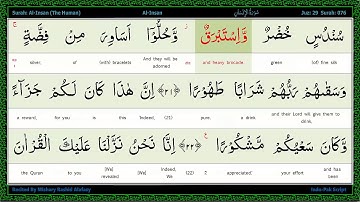 Surah: Al-Insan (The Human) Al-Insan سُورَةُ الْإِنْسَانِ Juz: 29 Surah: 076
سُنْدُسٍ خُضْرٌ وَّاِسْتَبْرَقٌ ؗ وَّحُلُّوْۤا اَسَاوِرَ مِنْ فِضَّةٍ ۚ
silver, of (with) bracelets And they will be adorned and heavy brocade. green (of) fine silk
وَسَقٰىهُمْ رَبُّهُمْ شَرَابًا طَهُوْرًا ﴿۲۱﴾ اِنَّ هٰذَا كَانَ لَكُمْ جَزَآءً
a reward, for you is this Indeed, (21) pure. a drink their Lord and will give them to drink,
وَّكَانَ سَعْيُكُمْ مَّشْكُوْرًا ﴿۲۲﴾ اِنَّا نَحْنُ نَزَّلْنَا عَلَيْكَ الْقُرْاٰنَ
the Quran to you [We] revealed [We] Indeed, We (22) appreciated. your effort and has been
Recited By Mishary Rashid Alafasy Indo-Pak Script